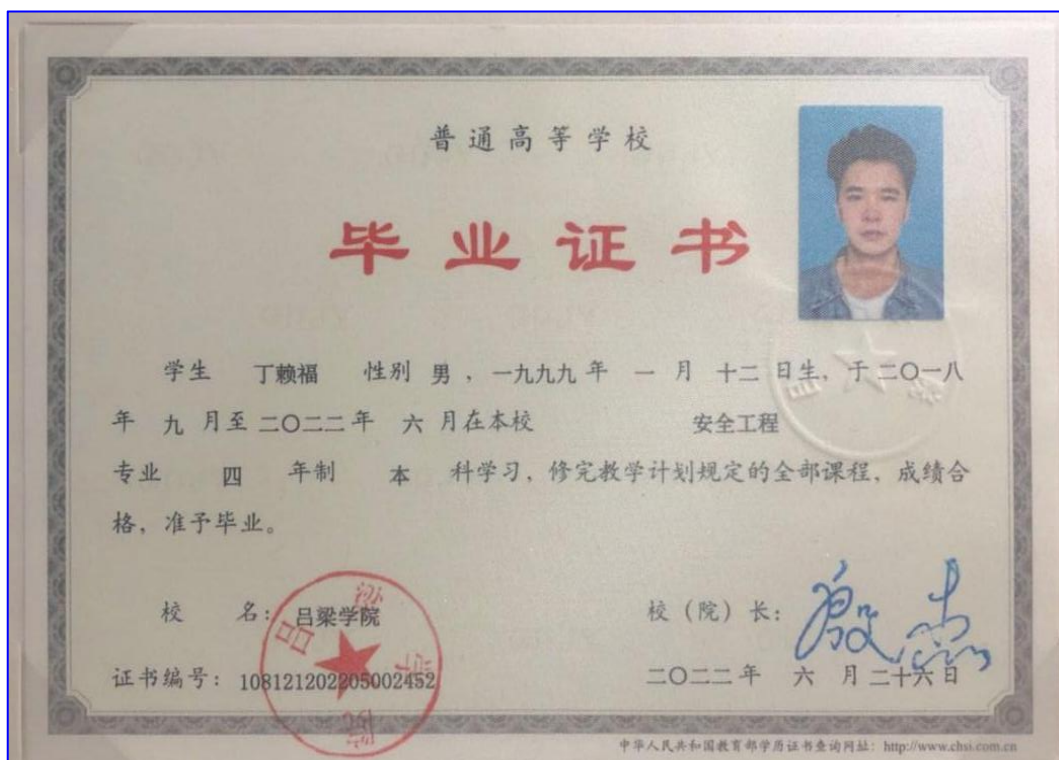 普通高等学校
毕业证书
学生 丁赖福 性别 男，一九九九年 一 月 十二 日生，于二〇一八
年 九 月至 二〇二二年 六 月在本校 安全工程
专业 四 年制 本 科学习，修完教学计划规定的全部课程，成绩合
格，准予毕业。
校 名：吕梁学院
校（院）长：
吕梁学院
证书编号：108121202205002452
二〇二二年 六 月二十六日
中华人民共和国教育部学历证书查询网址：http://www.chsi.com.cn